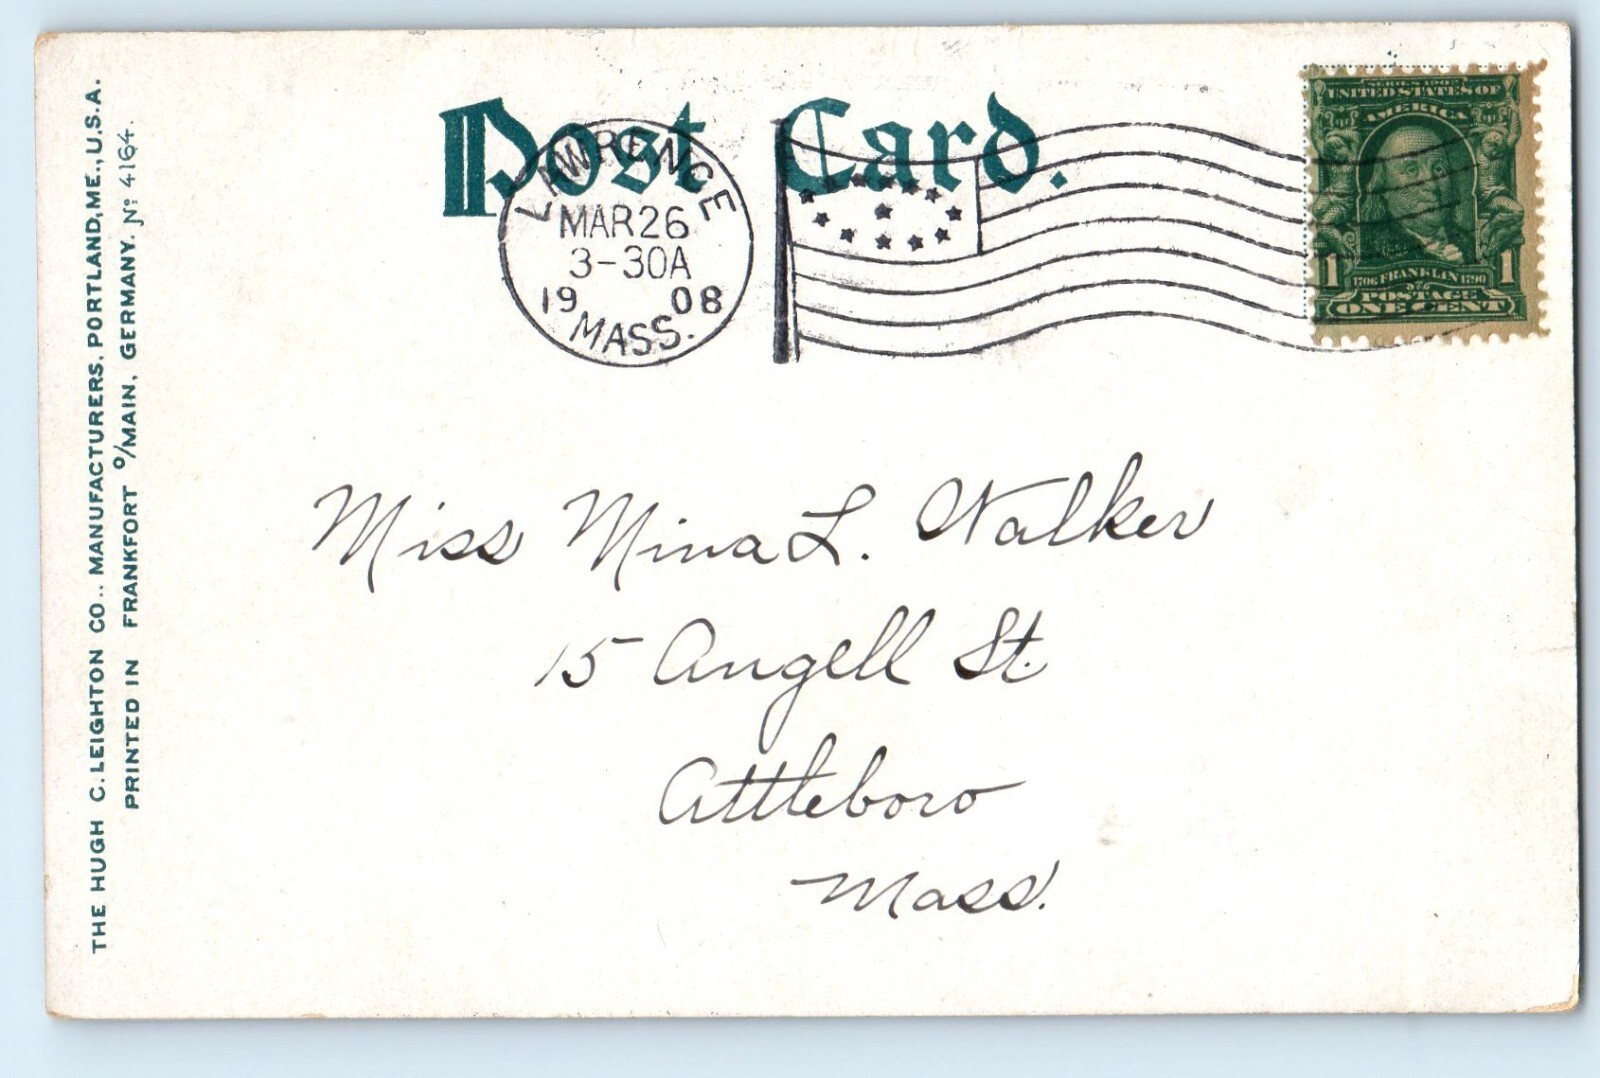 Post Card.
LAWRENCE
MAR 26
3-30A
1908
MASS.
SERIES 1902
UNITED STATES OF
AMERICA
1706 FRANKLIN 1790
1 POSTAGE 1
ONE CENT
Miss Mina L. Walker
15 Angell St.
Attleboro
Mass.
THE HUGH C. LEIGHTON CO.. MANUFACTURERS. PORTLAND, ME., U.S.A.
PRINTED IN FRANKFORT o/MAIN, GERMANY. No 4164.